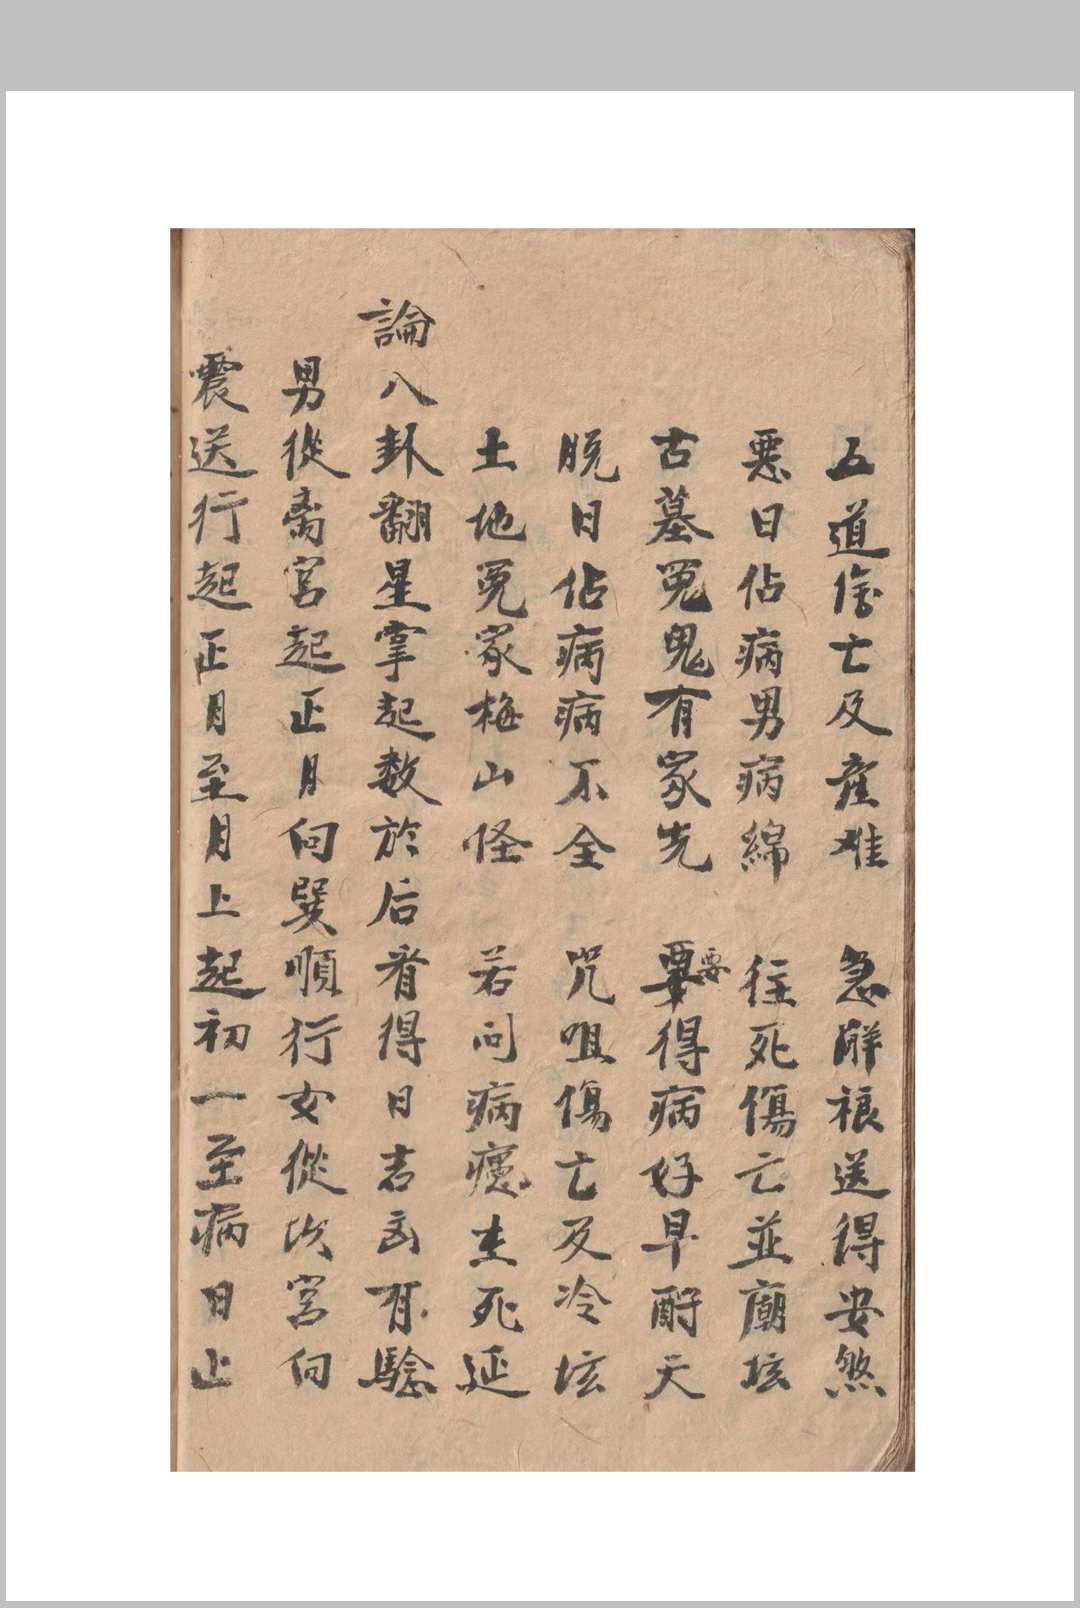 五道傷亡及產难 急解禳送得安然
惡日佔病男病綿 往死傷亡並廟坛
古墓冤鬼有家先 要要得病好早酧天
脫日佔病病不全 咒咀傷亡及冷坛
土地冤家梅山怪 若问病痕生死延
論八卦翻星掌起数於后看得日吉凶有驗
男從离宮起正月向巽順行女從坎宮向
震送行起正月至月上起初一至病日止